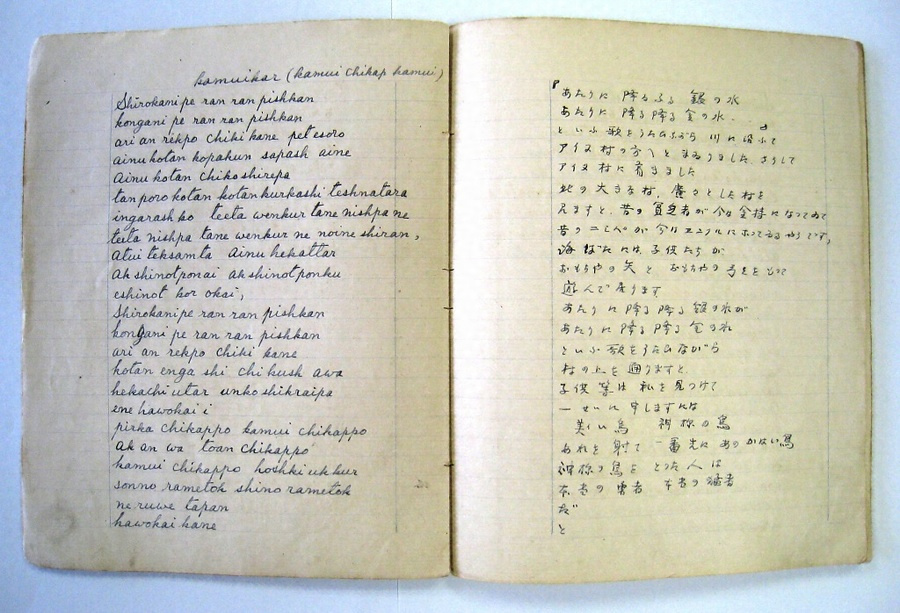 kamuikar (kamui chikap kamui)
Shirokanipe ran ran pishkan
kongani pe ran ran pishkan
ari an rekpo chiki kane petesoro
ainu kotan kopakun sapash aine
Ainu kotan chikoshirepa
tan poro kotan kotankurkashi teshnatara
ingarash ko teeta wenkur tane nishpa ne
teeta nishpa tane wenkur ne noine shiran,
Atui teksamta Ainu hekattar
Ak shinotponai ak shinotponku
eshinot kor okai,
Shirokanipe ran ran pishkan
kongani pe ran ran pishkan
ari an rekpo chiki kane
kotan enga shi chi kush awa
hekachi utar unko shikraipa
ene hawokai i
pirka chikappo kamui chikappo
Ak an wa toan chikappo
kamui chikappo hoshki uk kur
sonno rametok shino rametok
ne ruwe tapan
hawokai kane
あたりに 降るふる 銀の水
あたりに 降る降る 金の水.
といふ歌をうたひながら 川に沿ふて
アイヌ村の方へとまゐりました さうして
アイヌ村に着きました
此の大きな村, 廣々とした村を
見ますと, 昔の貧乏者が今お金持になってゐて
昔のニシパが今はウエンクルになってゐるやうです,
海ばたには, 子供たちが
おもちゃの矢と おもちゃの弓をもって
遊んで居ります
あたりに降る降る 銀の水が
あたりに降る降る 金の水
といふ歌をうたひながら
村の上を通りますと
子供等は私を見つけて
一せいに申しますには
美しい鳥 神様の鳥
あれを射て 一番先にあのかはいい鳥
神様の鳥を とった人は
本当の勇者 本当の強者
だ
と